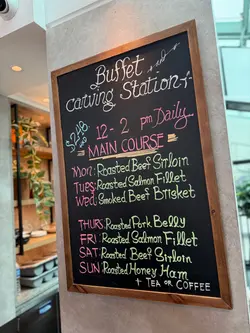 Buffet
Carving Station
12 - 2 pm Daily...
MAIN COURSE
Mon: Roasted Beef Sirloin
Tues: Roasted Salmon Fillet
Wed: Smoked Beef Brisket
THURS: Roasted Pork Belly
FRI: Roasted Salmon Fillet
SAT: Roasted Beef Sirloin
SUN: Roasted Honey Ham
+ TEA OR COFFEE